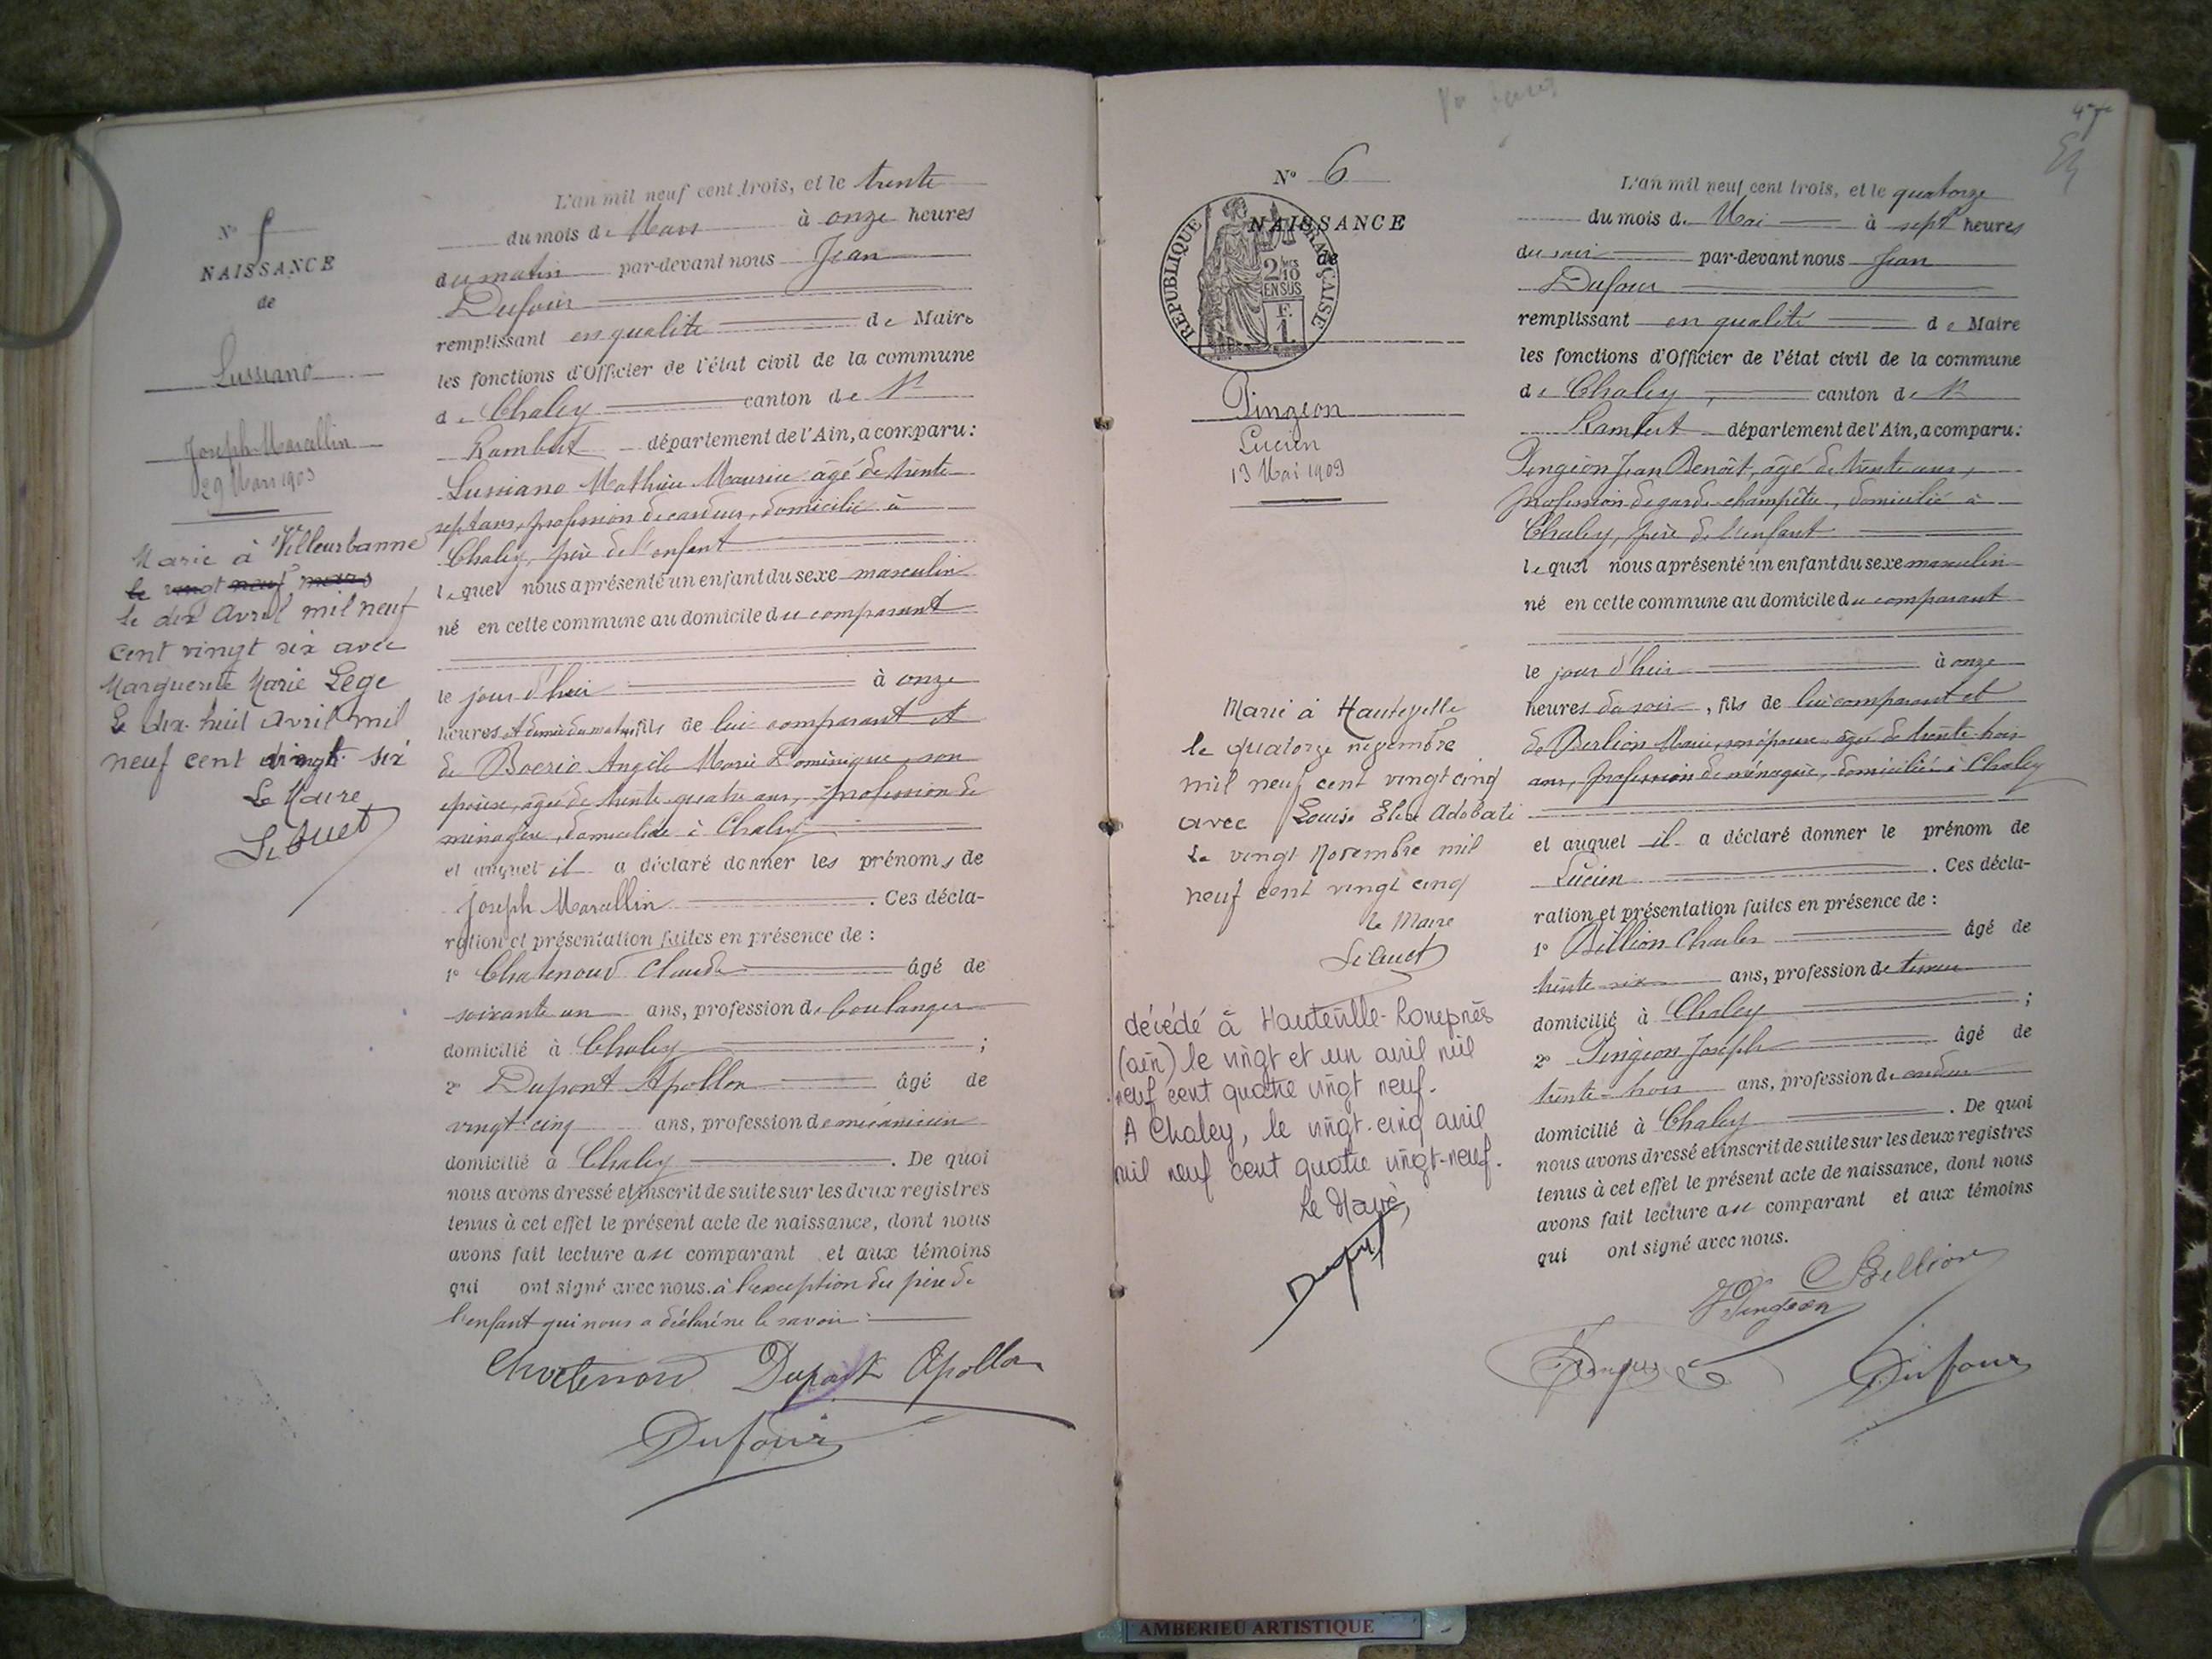 N° 5
NAISSANCE
de
Lussiano
Joseph Marcellin
29 Mars 1903
Marié à Villeurbanne
le vingt neuf mars
le dix Avril mil neuf
cent vingt six avec
Marguerite Marie Lège
Le dix-huit Avril mil
neuf cent vingt six
Le Maire
L'an mil neuf cent trois, et le trente
du mois de Mars à onze heures
du matin par-devant nous Jean
Dufour
remplissant en qualité de Maire
les fonctions d'Officier de l'état civil de la commune
de Chaley canton de St
Rambert département de l'Ain, a comparu :
Lussiano Mathieu Maurice âgé de trente
sept ans, profession de cardeur, domicilié à
Chaley, père de l'enfant
lequel nous a présenté un enfant du sexe masculin
né en cette commune au domicile du comparant
le jour d'hier à onze
heures et demie du matin, fils de lui comparant et
de Boerio Angèle Marie Dominique, son
épouse, âgée de trente-quatre ans, profession de
ménagère, domiciliée à Chaley
et auquel il a déclaré donner les prénoms de
Joseph Marcellin . Ces décla-
ration et présentation faites en présence de :
1° Chatenoud Claude âgé de
soixante un ans, profession de boulanger
domicilié à Chaley ;
2° Dupont Apollon âgé de
vingt cinq ans, profession de mécanicien
domicilié à Chaley . De quoi
nous avons dressé et inscrit de suite sur les deux registres
tenus à cet effet le présent acte de naissance, dont nous
avons fait lecture au comparant et aux témoins
qui ont signé avec nous. à l'exception du père de
l'enfant qui nous a déclaré ne le savoir
Chatenoud Dupont Apollon
Dufour
47
N° 6
NAISSANCE
de
REPUBLIQUE FRANÇAISE
2/10 EN SUS
F. 1
Pingeon
Lucien
13 Mai 1903
Marié à Hauteville
le quatorze novembre
mil neuf cent vingt cinq
avec Louise Elise Adobati
Le vingt Novembre mil
neuf cent vingt cinq
Le Maire
décédé à Hauteville-Lompnès
(ain) le vingt et un avril mil
neuf cent quatre vingt neuf.
A Chaley, le vingt-cinq avril
mil neuf cent quatre vingt-neuf.
Le Maire,
L'an mil neuf cent trois, et le quatorze
du mois de Mai à sept heures
du soir par-devant nous Jean
Dufour
remplissant en qualité de Maire
les fonctions d'Officier de l'état civil de la commune
de Chaley, canton de St
Rambert département de l'Ain, a comparu :
Pingeon Jean Benoît, âgé de trente ans,
profession de garde-champêtre, domicilié à
Chaley, père de l'enfant
lequel nous a présenté un enfant du sexe masculin
né en cette commune au domicile du comparant
le jour d'hier à onze
heures du soir, fils de lui comparant et
de Berlion Marie, son épouse âgée de trente trois
ans, profession de ménagère, domiciliée à Chaley
et auquel il a déclaré donner le prénom de
Lucien . Ces décla-
ration et présentation faites en présence de :
1° Billion Charles âgé de
trente six ans, profession de
domicilié à Chaley ;
2° Pingeon Joseph âgé de
trente-trois ans, profession de cardeur
domicilié à Chaley . De quoi
nous avons dressé et inscrit de suite sur les deux registres
tenus à cet effet le présent acte de naissance, dont nous
avons fait lecture au comparant et aux témoins
qui ont signé avec nous.
C Billion
J Pingeon
Dufour
AMBERIEU ARTISTIQUE